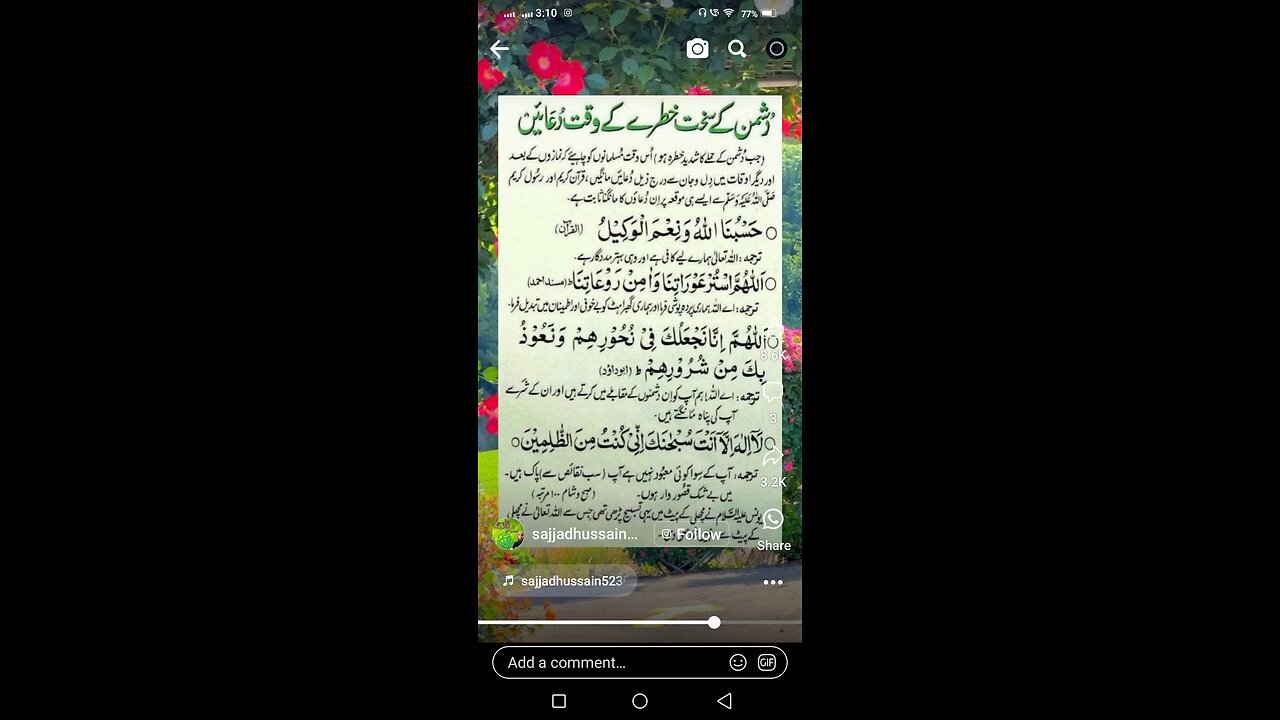 3:10
77%
دُشمن کے سخت خطرے کے وقت دُعَائیں
(جب دُشمن کے حملے کا شدید خطرہ ہو) اُس وقت مُسلمانوں کو چاہیئے کہ نمازوں کے بعد
اور دیگر اوقات میں دِل و جان سے درج ذیل دُعائیں مانگیں، قرآن کریم اور رسُول کریم
صَلَّی اللہُ عَلَیْہِ وَسَلَّم سے ایسے ہی موقعہ پر اِن دُعاؤں کا مانگنا ثابت ہے۔
حَسْبُنَا اللّٰهُ وَنِعْمَ الْوَكِيْلُ (القرآن)
ترجمہ: اللہ تعالیٰ ہمارے لیے کافی ہے اور وہی بہتر مددگار ہے۔
اَللّٰهُمَّ اسْتُرْ عَوْرَاتِنَا وَاٰمِنْ رَوْعَاتِنَا ط (مسند احمد)
ترجمہ: اے اللہ ہماری پردہ پوشی فرما اور ہماری گھبراہٹ کو بےخوفی اور اطمینان میں تبدیل فرما۔
اَللّٰهُمَّ اِنَّا نَجْعَلُكَ فِیْ نُحُوْرِهِمْ وَنَعُوْذُ
8.6K
بِكَ مِنْ شُرُوْرِهِمْ ط (ابوداؤد)
ترجمہ: اے اللہ! ہم آپ کو اِن دُشمنوں کے مقابلے میں کرتے ہیں اور ان کے شر سے
آپ کی پناہ مانگتے ہیں۔
3
لَآ اِلٰهَ اِلَّآ اَنْتَ سُبْحٰنَكَ اِنِّیْ كُنْتُ مِنَ الظّٰلِمِيْنَ
ترجمہ: آپ کے سِوا کوئی معبُود نہیں ہے آپ (سب نقائص سے) پاک ہیں۔
3.2K
میں بے شک قصُور وار ہوں۔ (صبح و شام ۱۰۰ مرتبہ)
یونس علیہ السَّلام نے مچھلی کے پیٹ میں یہی تسبیح پڑھی تھی جس سے اللہ تعالیٰ نے مچھلی
کے پیٹ سے
sajjadhussain...
Follow
Share
sajjadhussain523
Add a comment...
GIF